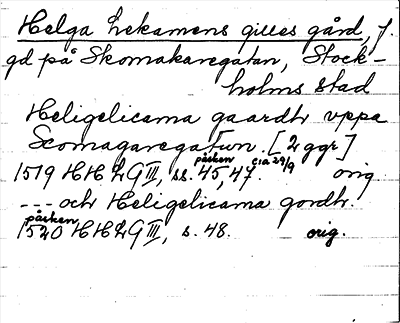 Helga Lekamens gilles gård, f.
gd på Skomakaregatan, Stock-
holms stad
Heligelicama gaardh vppa
Scomagaregatwn. [2 ggr]
påsken c:a 29/9
1519 HH LG III, ss. 45, 47. orig
--- och Heligelicama gordh.
påsken
1520 HH LG III, s. 48. orig.